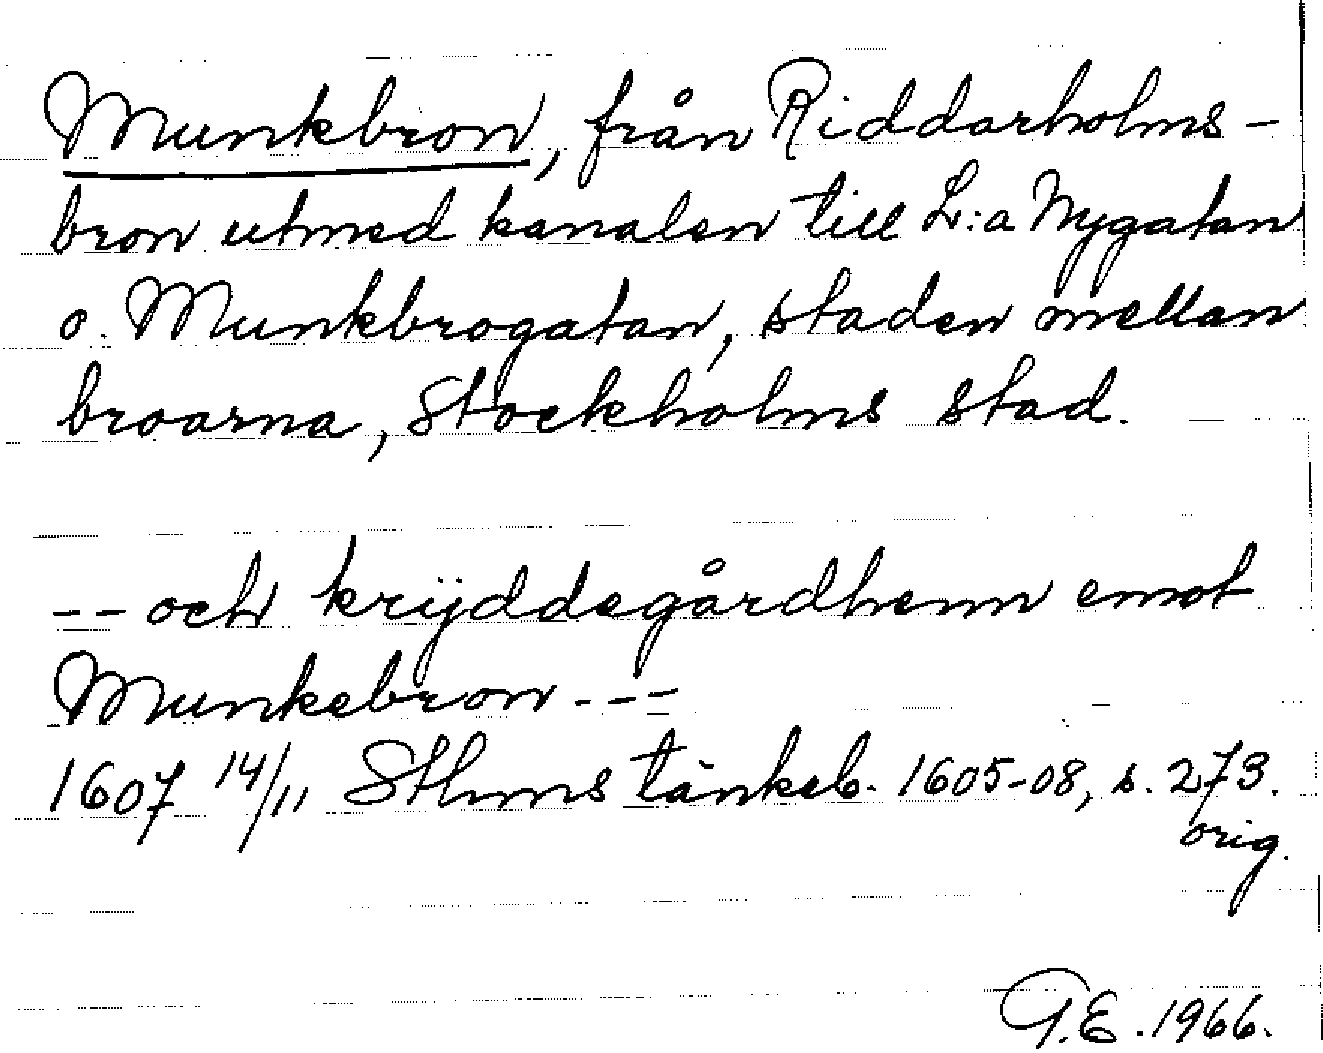 Munkbron, från Riddarholms-
bron utmed kanalen till L:a Nygatan
o. Munkbrogatan, staden mellan
broarna, Stockholms stad.
-- och krÿddegårdhenn emot
Munkebron ---
1607 14/11 Sthms tänkeb. 1605-08, s. 273.
orig.
G.E. 1966.